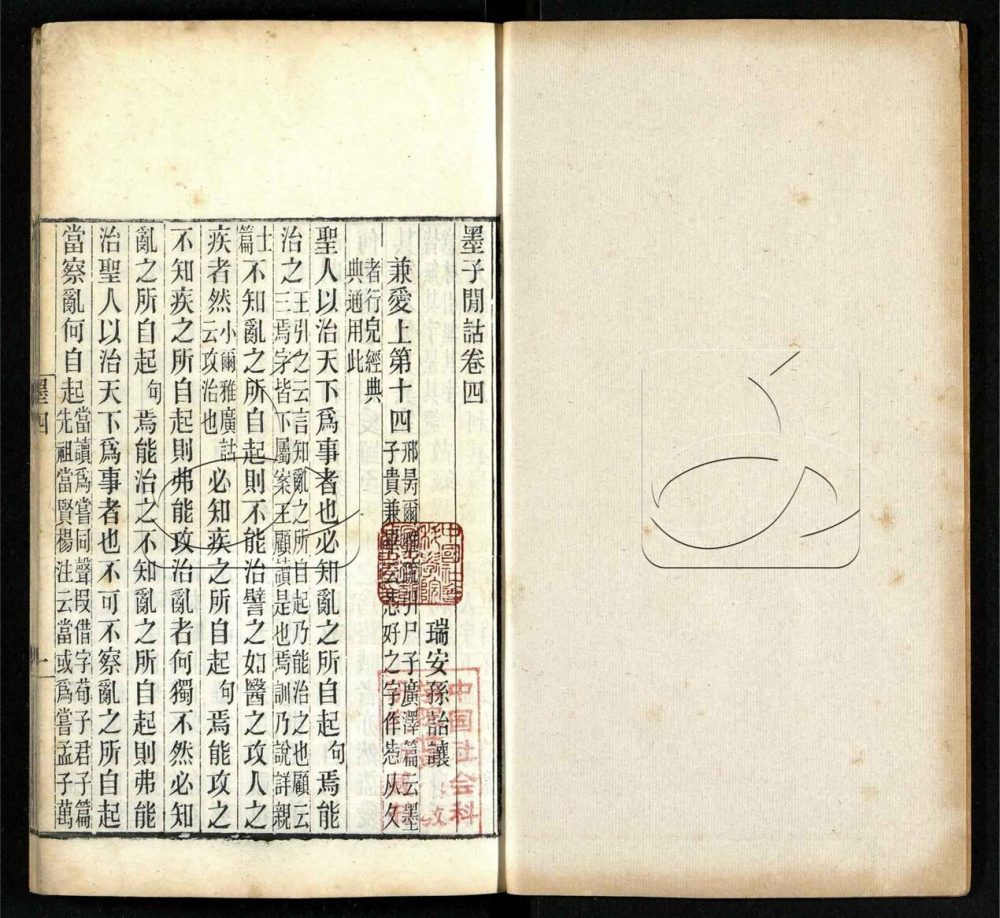 墨子閒詁卷四
瑞安孫詒讓
兼愛上第十四邢昺爾雅疏引尸子廣澤篇云墨
子貴兼
好之字作㤅从夂
者行皃經典
典通用此
聖人以治天下爲事者也必知亂之所自起句焉能
治之王引之云言知亂之所自起乃能治之也顧云
三焉字皆下屬案王顧讀是也焉訓乃說詳親
士
篇不知亂之所自起則不能治譬之如醫之攻人之
疾者然小爾雅廣詁
云攻治也必知疾之所自起句焉能攻之
不知疾之所自起則弗能攻治亂者何獨不然必知
亂之所自起句焉能治之不知亂之所自起則弗能
治聖人以治天下爲事者也不可不察亂之所自起
當察亂何自起當讀爲嘗同聲叚借字荀子君子篇
先祖當賢楊注云當或爲嘗孟子萬
墨四
一
中国社会科